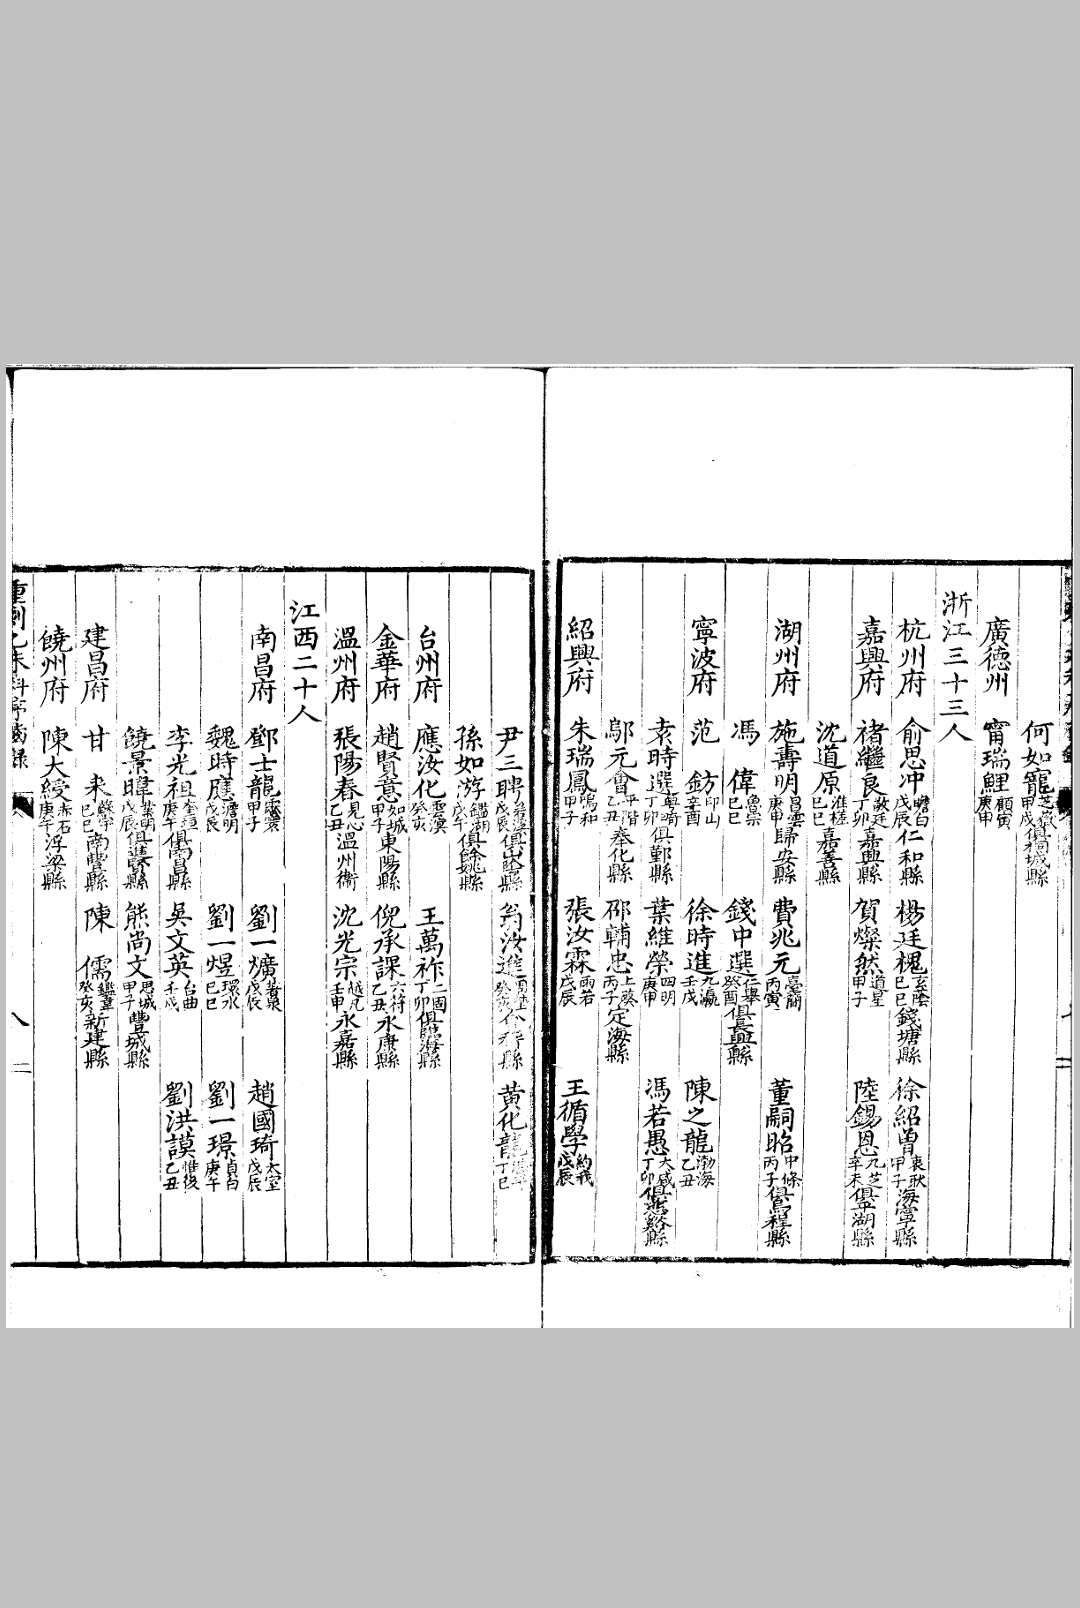 何如寵芝嶽甲戌俱桐城縣
廣德州 甯瑞鯉顧寅庚申
浙江三十三人
杭州府 俞思冲瞻白戊辰仁和縣 楊廷槐玄蔭己巳錢塘縣 徐紹曾衷耿甲子海寧縣
嘉興府 禇繼良敬廷丁卯嘉興縣 賀燦然道星甲子 陸錫恩九芝辛未俱平湖縣
沈道原淮槎己巳嘉善縣
湖州府 施壽明昌雲庚申歸安縣 費兆元臺簡丙寅 董嗣昭中條丙子俱烏程縣
馮 偉魯崇己巳 錢中選仁舉癸酉俱長興縣
寧波府 范 鈁印山辛酉 徐時進九瀛壬戌 陳之龍渤海乙丑
袁時選粵崎丁卯俱鄞縣 葉維榮四明庚申 馮若愚大咸丁卯俱慈谿縣
鄔元會平階乙丑奉化縣 邵輔忠上葵丙子定海縣
紹興府 朱瑞鳳鳴和甲子 張汝霖雨若戊辰 王循學約我戊辰
尹三聘戊辰俱山陰縣 翁汝進癸亥 黃化龍丁巳
孫如游鑑湖戊午俱餘姚縣
台州府 應汝化雲濱癸亥 王萬祚二國丁卯俱臨海縣
金華府 趙賢意如城甲子東陽縣 倪承課六符乙丑永康縣
溫州府 張陽春見心乙丑溫州衛 沈光宗越凡壬申永嘉縣
江西二十人
南昌府 鄧士龍甲子 劉一爌戊辰 趙國琦太室戊辰
魏時應澹明戊辰 劉一煜環水己巳 劉一璟貞白庚午
李光祖奎垣庚午俱南昌縣 吳文英台曲壬戌 劉洪謨惟俊乙丑
饒景暐戊辰俱進賢縣 熊尚文思城甲子豐城縣
建昌府 甘 來己巳南豐縣 陳 儒癸亥新建縣
饒州府 陳大綬赤石庚午浮梁縣
重刻乙未科序齒錄
八